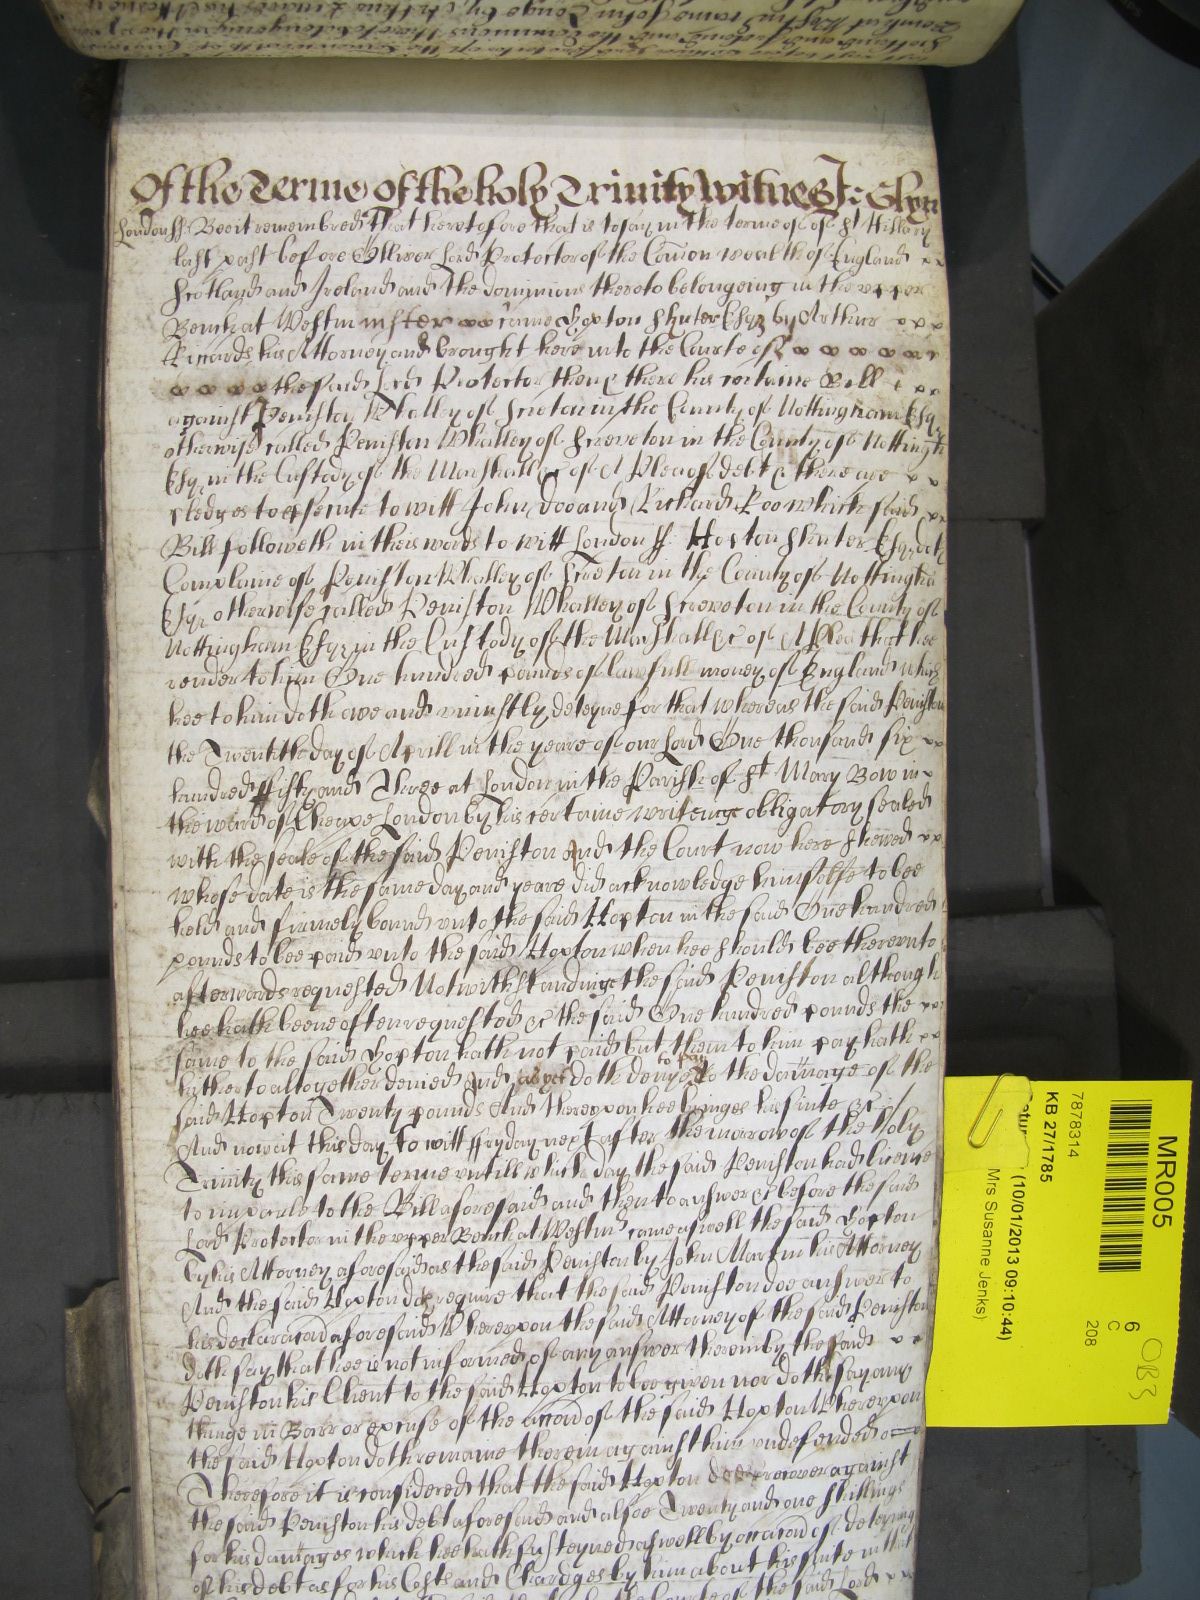 Of the Terme of the holy Trinity Witnes J: Glyn
London ss Bee it remembred That heretofore that is to say in the terme of St Hillary
last past before Olliver Lord Protector of the Comon wealth of England
Scotland and Ireland and the dominions thereto belongeing in the upper
Bench at Westminster came Hopton Shuter Esqr by Arthur
Ricards his Attorney and brought here into the Courte of
the said Lord Protector then & there his certaine Bill
against Peniston Whalley of Screton in the County of Nottingham Esqr
otherwise called Peniston Whalley of Screveton in the County of Nottingh
Esqr in the Custody of the Marshall &c of A Plea of debt & there are
pledges to psecute to witt John Doo and Richard Roo which said
Bill followeth in theis words to witt London ss: Hopton Shuter Esqr doth
Complaine of Peniston Whalley of Screton in the County of Nottingha
Esqr otherwise called Peniston Whalley of Screveton in the County of
Nottingham Esqr in the Custody of the Marshall &c of A Plea that hee
render to him One hundred pounds of lawfull money of England which
hee to him doth owe and uniustly deteyne for that whereas the said Peniston
the Twentith day of Aprill in the yeare of our Lord One thousand six
hundred fifty and Three at London in the Parish of St Mary Bow in
the ward of Cheape London by his certaine writeinge obligatory sealed
with the seale of the said Peniston And the Court now here shewed
whose date is the same day and yeare did acknowledge himselfe to bee
held and firmely bound unto the said Hopton in the said One hundred
pounds to bee paid unto the said Hopton when hee should bee thereunto
afterwards requested Notwithstandinge the said Peniston although
hee hath beene often requested &c the said One hundred pounds the
same to the said Hopton hath not paid but them to him pay hath
hitherto altogether denied And as yet doth denye to pay to the damage of the
said Hopton Twenty pounds And thereupon hee bringes his suite &c
And now at this day to witt ffryday next after the morrow of the holy
Trinity this same terme untill which day the said Peniston had licence
to imparle to the Bill aforesaid and then to answer &c before the said
Lord Protector in the upper Bench at Westmr came aswell the said Hopton
by his Attorney aforesaid as the said Peniston by John Martin his Attorney
And the said Hopton doth require that the said Peniston doe answer to
his declaracion aforesaid Whereupon the said Attorney of the said Peniston
doth say that hee is not informed of any answer therein by the said
Peniston his Client to the said Hopton to bee given nor doth say any
thinge in Barr or excuse of the accion of the said Hopton Whereupon
the said Hopton doth remaine therein against him undefended
Therefore it is considered that the said Hopton doe recover against
the said Peniston his debt aforesaid and alsoe Twenty and one shillings
for his damages which hee hath susteyned aswell by occasion of deteyning
of his debt as for his Costs and Chardges by him about his suite in that
MR005
7878314
KB 27/1785
(10/01/2013 09:10:44)
Mrs Susanne Jenks)
6
C
208
OB3